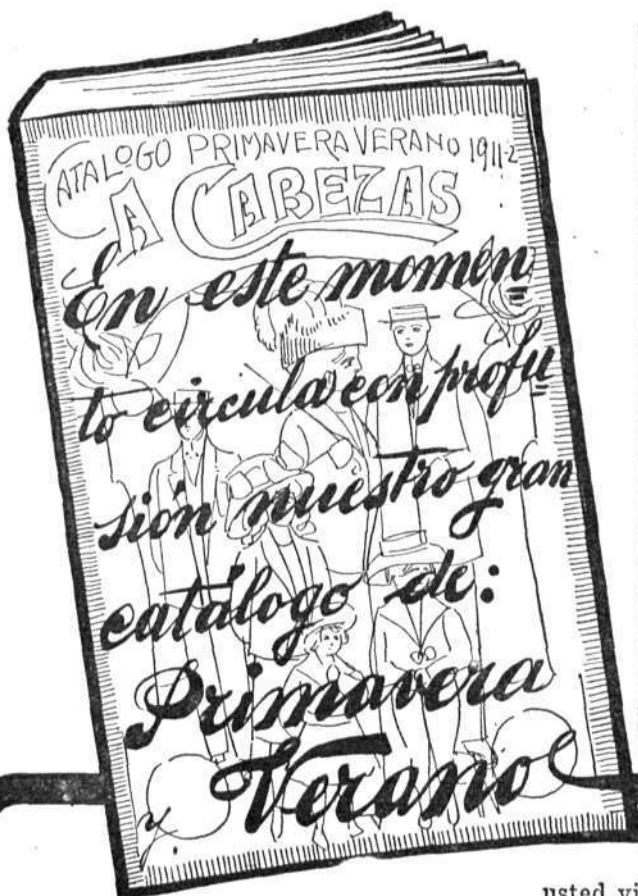 CATALOGO PRIMAVERA VERANO 1911-2
A CABEZAS
En este momen
to circula con profu
sión nuestro gran
catálogo de:
Primavera
y Verano
usted vi